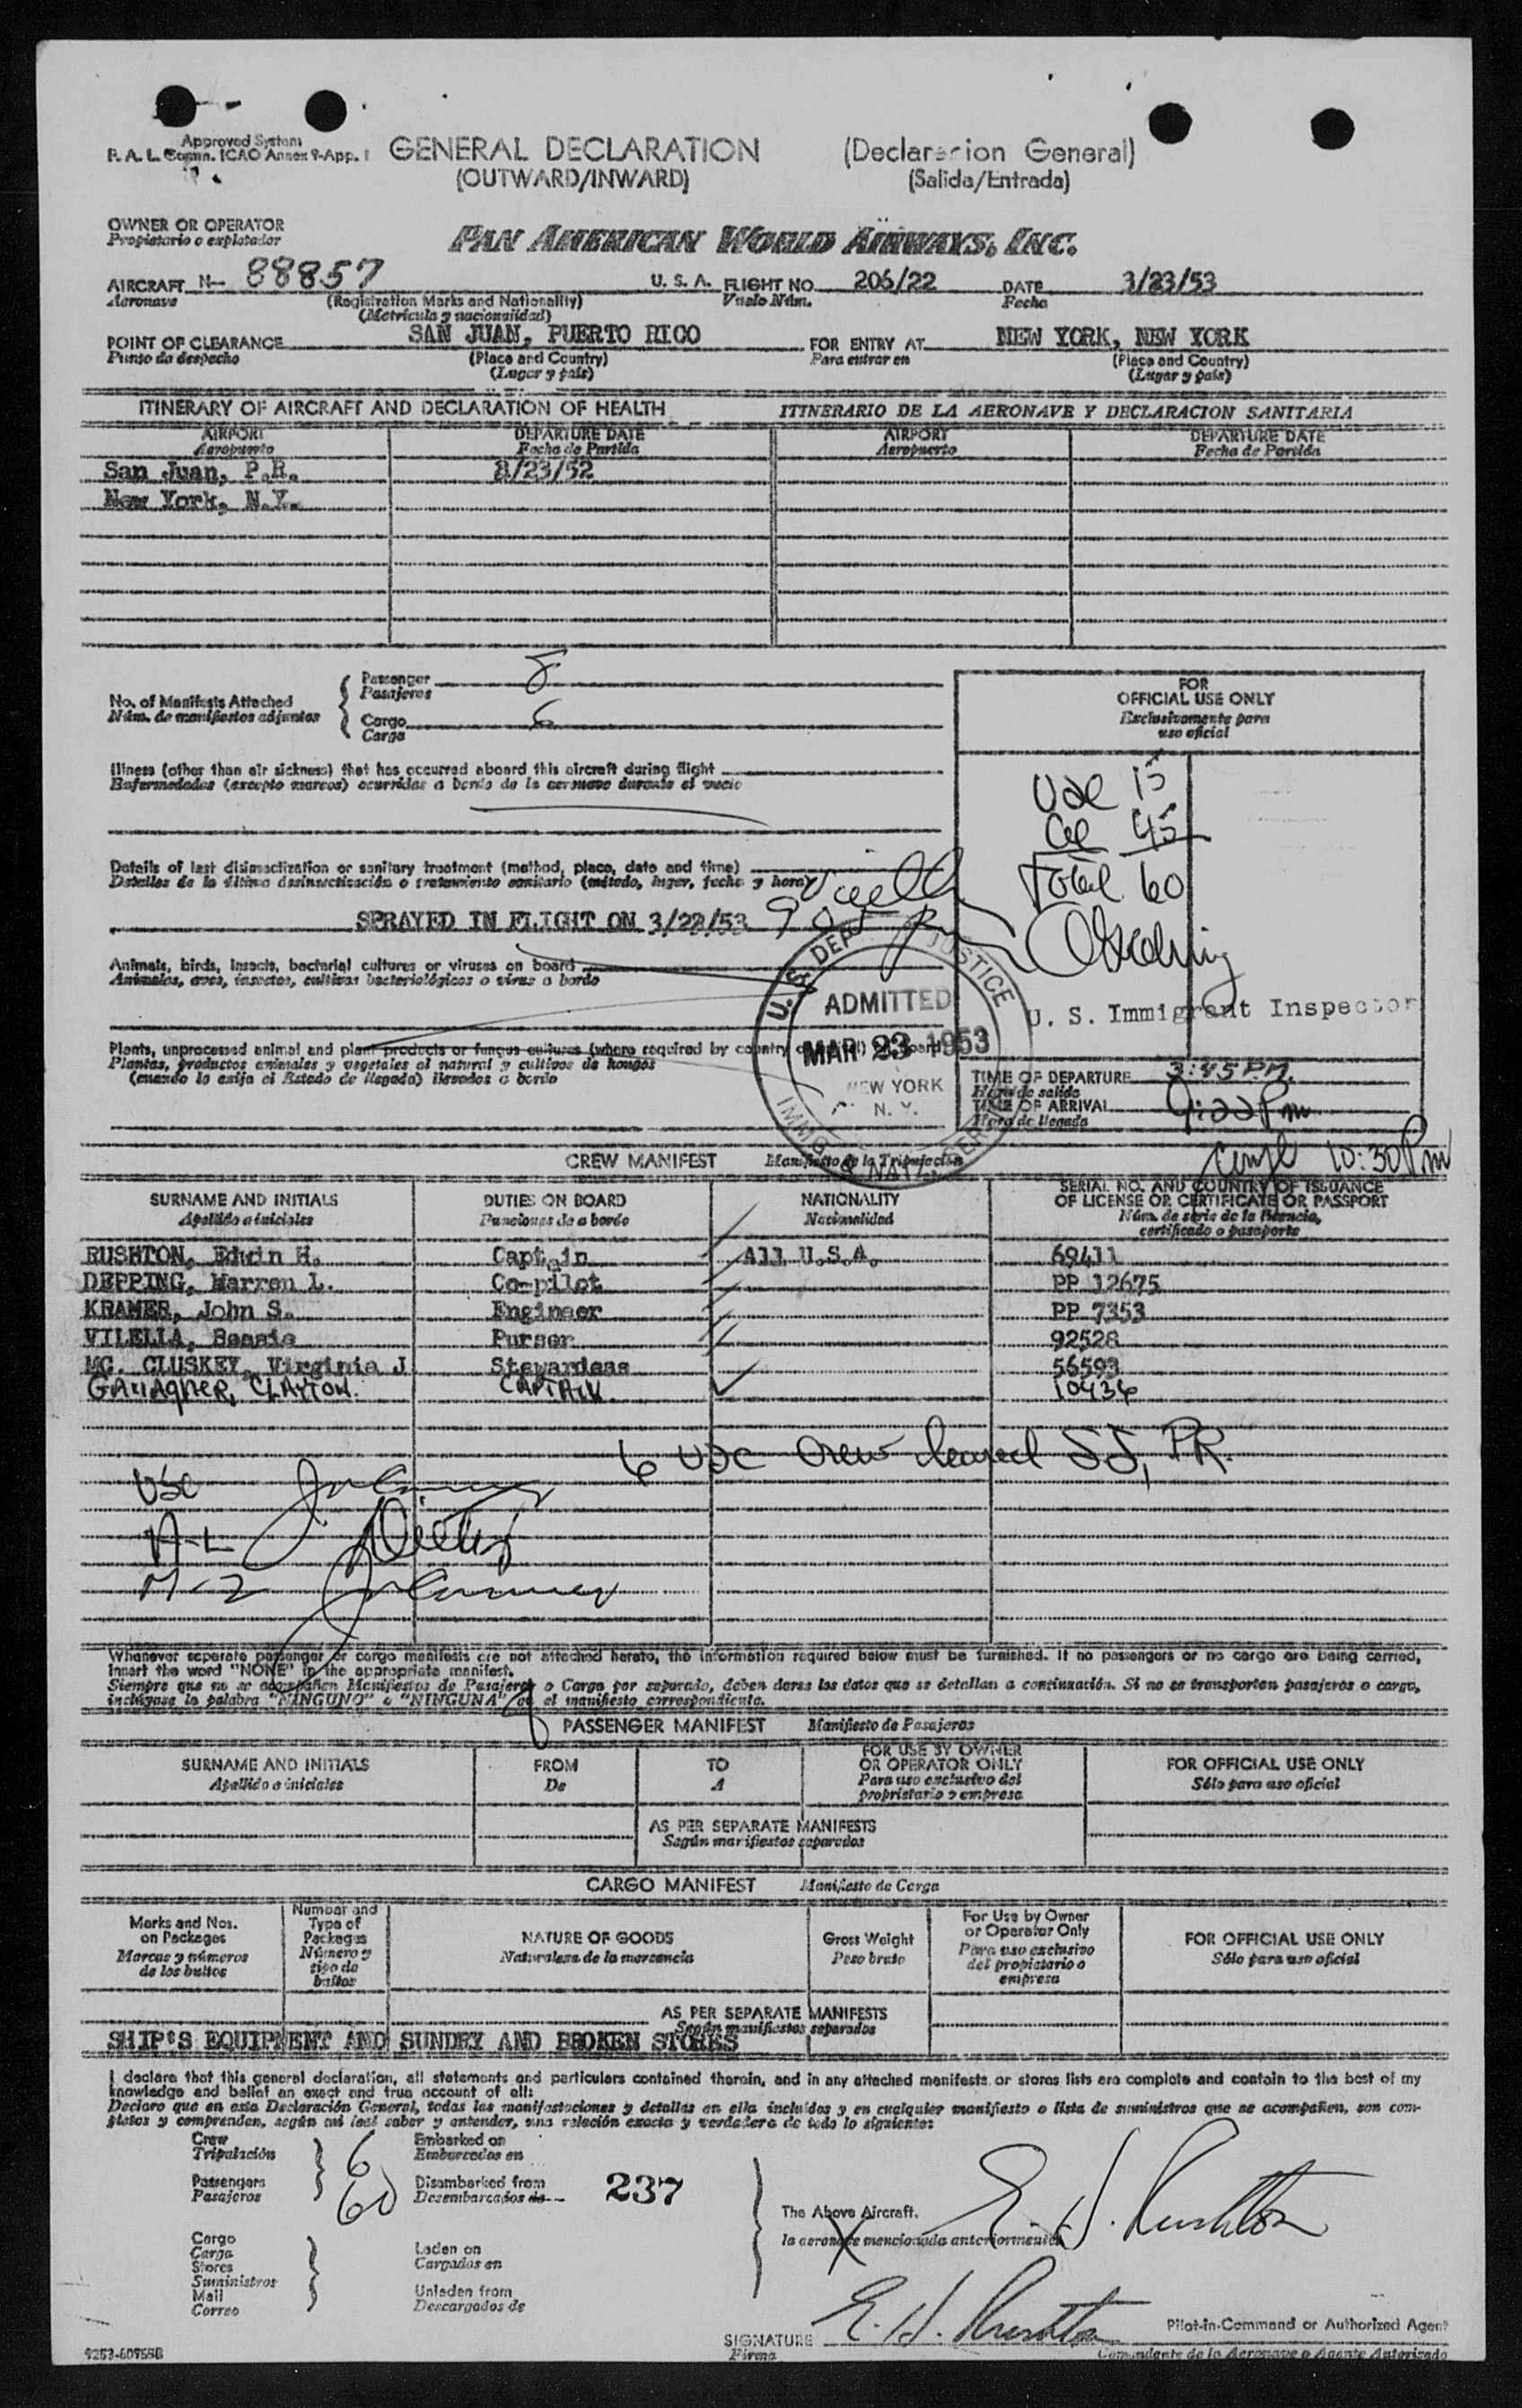 Approved System
F. A. L. Comm. ICAO Annex 9-App. 1
GENERAL DECLARATION
(Declaracion General)
(OUTWARD/INWARD)
(Salida/Entrada)
OWNER OR OPERATOR
Propietario o explotador
PAN AMERICAN WORLD AIRWAYS, INC.
AIRCRAFT N- 88857 U. S. A. FLIGHT NO. 206/22 DATE 3/23/53
Aeronave (Registration Marks and Nationality) Vuelo Núm. Fecha
(Matrícula y nacionalidad)
POINT OF CLEARANCE SAN JUAN, PUERTO RICO FOR ENTRY AT NEW YORK, NEW YORK
Punto de despacho (Place and Country) Para entrar en (Place and Country)
(Lugar y país) (Lugar y país)
ITINERARY OF AIRCRAFT AND DECLARATION OF HEALTH ITINERARIO DE LA AERONAVE Y DECLARACION SANITARIA
AIRPORT DEPARTURE DATE AIRPORT DEPARTURE DATE
Aeropuerto Fecha de Partida Aeropuerto Fecha de Partida
San Juan, P.R. 3/23/52
New York, N.Y.
No. of Manifests Attached
Núm. de manifiestos adjuntos
Passenger 8
Pasajeros
Cargo 6
Carga
FOR
OFFICIAL USE ONLY
Exclusivamente para
uso oficial
Illness (other than air sickness) that has occurred aboard this aircraft during flight
Enfermedades (excepto mareos) ocurridas a bordo de la aeronave durante el vuelo
USC 15
45
Total 60
Details of last disinsectization or sanitary treatment (method, place, date and time)
Detalles de la última desinsectización o tratamiento sanitario (método, lugar, fecha y hora)
SPRAYED IN FLIGHT ON 3/23/53
Animals, birds, insects, bacterial cultures or viruses on board
Animales, aves, insectos, cultivos bacteriológicos o virus a bordo
U. S. DEPT JUSTICE
ADMITTED
MAR 23 1953
NEW YORK
N. Y.
IMMIG. & NAT. SERVICE
U. S. Immigrant Inspector
Plants, unprocessed animal and plant products or fungus cultures (where required by country of arrival) on board
Plantas, productos animales y vegetales al natural y cultivos de hongos
(cuando lo exija el Estado de llegada) llevados a bordo
TIME OF DEPARTURE 3:45 P.M.
Hora de salida
TIME OF ARRIVAL 9:22 Pm
Hora de llegada
10:30 Pm
CREW MANIFEST Manifiesto de la Tripulación
SURNAME AND INITIALS DUTIES ON BOARD NATIONALITY SERIAL NO. AND COUNTRY OF ISSUANCE
OF LICENSE OR CERTIFICATE OR PASSPORT
Apellido e iniciales Funciones de a bordo Nacionalidad Núm. de serie de la licencia,
certificado o pasaporte
RUSHTON, Edwin H. Captain All U.S.A. 69411
DEPPING, Warren L. Co-pilot PP 12675
KRAMER, John S. Engineer PP 7353
VILELLA, Bessie Purser 92528
MC. CLUSKEY, Virginia J. Stewardess 56593
GALLAGHER, CLAYTON. CAPTAIN 10436
6 USC Crew cleared SJ, PR.
USC
Whenever separate passenger or cargo manifests are not attached hereto, the information required below must be furnished. If no passengers or no cargo are being carried,
insert the word "NONE" in the appropriate manifest.
Siempre que no se acompañen Manifiestos de Pasajeros o Carga por separado, deben darse los datos que se detallan a continuación. Si no se transportan pasajeros o carga,
inclúyase la palabra "NINGUNO" o "NINGUNA" en el manifiesto correspondiente.
PASSENGER MANIFEST Manifiesto de Pasajeros
SURNAME AND INITIALS FROM TO FOR USE BY OWNER
OR OPERATOR ONLY FOR OFFICIAL USE ONLY
Apellido e iniciales De A Para uso exclusivo del
propietario o empresa Sólo para uso oficial
AS PER SEPARATE MANIFESTS
Según manifiestos separados
CARGO MANIFEST Manifiesto de Carga
Marks and Nos.
on Packages
Marcas y números
de los bultos
Number and
Type of
Packages
Número y
tipo de
bultos
NATURE OF GOODS
Naturaleza de la mercancía
Gross Weight
Peso bruto
For Use by Owner
or Operator Only
Para uso exclusivo
del propietario o
empresa
FOR OFFICIAL USE ONLY
Sólo para uso oficial
AS PER SEPARATE MANIFESTS
Según manifiestos separados
SHIP'S EQUIPMENT AND SUNDRY AND BROKEN STORES
I declare that this general declaration, all statements and particulars contained therein, and in any attached manifests or stores lists are complete and contain to the best of my
knowledge and belief an exact and true account of all:
Declaro que en esta Declaración General, todas las manifestaciones y detalles en ella incluídos y en cualquier manifiesto o lista de suministros que se acompañen, son com-
pletos y comprenden, según mi leal saber y entender, una relación exacta y verdadera de todo lo siguiente:
Crew
Tripulación 6
Passengers
Pasajeros 60
Embarked on
Embarcados en
Disembarked from
Desembarcados de
237
The Above Aircraft.
la aeronave mencionada anteriormente
E. H. Rushton
Cargo
Carga
Stores
Suministros
Mail
Correo
Laden on
Cargados en
Unladen from
Descargados de
SIGNATURE E. H. Rushton
Firma
Pilot-in-Command or Authorized Agent
Comandante de la Aeronave o Agente Autorizado